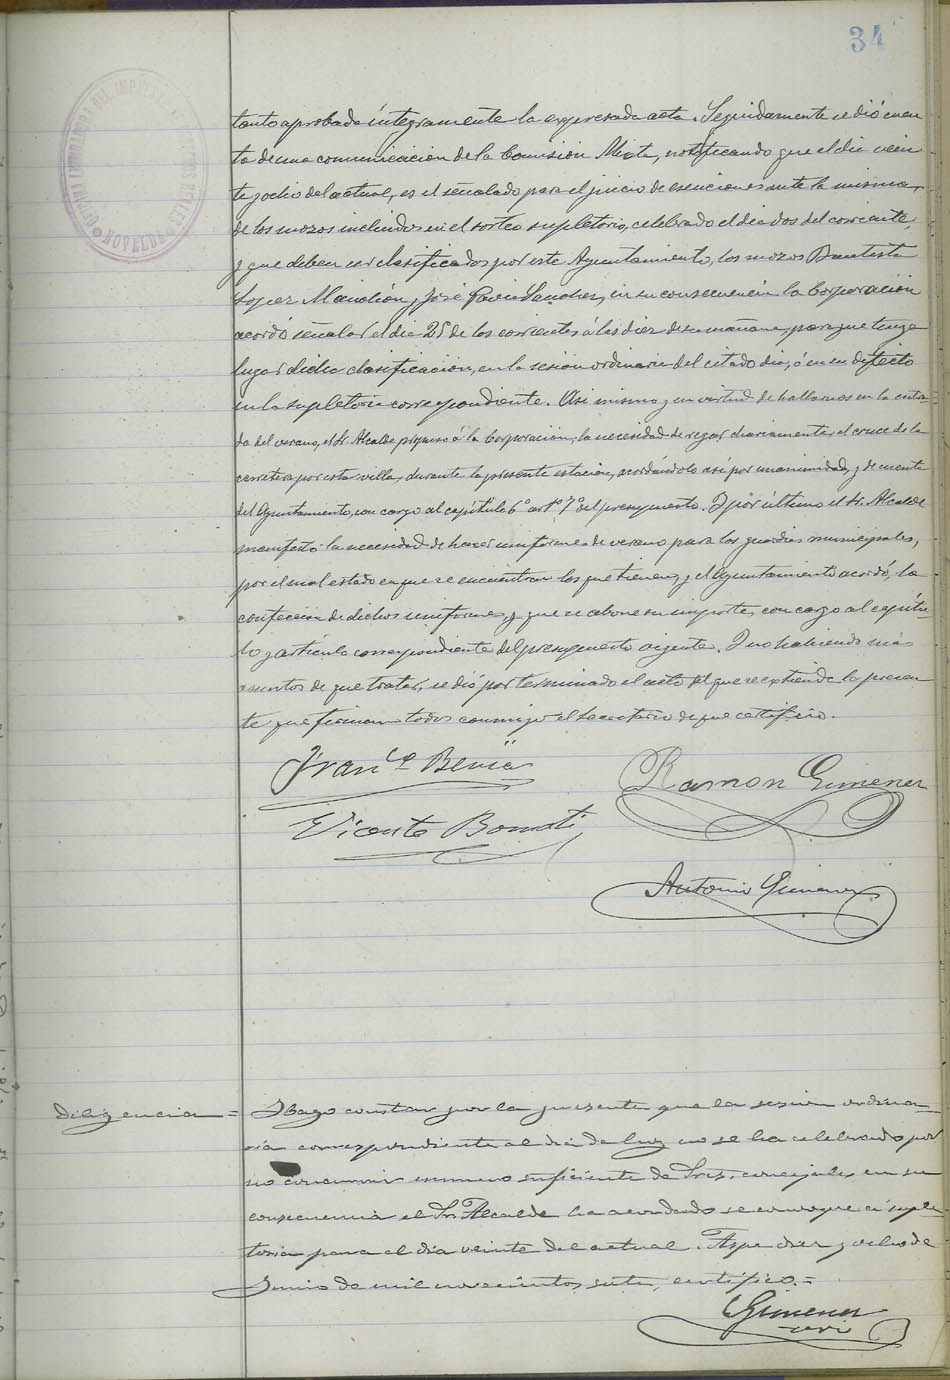 34
tanto aprobada íntegramente la expresada acta. Seguidamente se dió cuen
ta de una comunicacion de la Comisión Mixta, notificando que el dia vein
te y ocho del actual, es el señalado para el juicio de esenciones ante la misma,
de los mozos incluidos en el sorteo supletorio, celebrado el dia dos del corriente,
y que deben ser clasificados por este Ayuntamiento, los mozos Bautista
Lopez y José Sanchez, en su consecuencia la Corporacion
acordó señalar el dia 25 de los corrientes á las diez de su mañana, para que tenga
lugar dicha clasificacion, en la sesion ordinaria del citado dia, ó en su defecto
en la supletoria correspondiente. Asi mismo y en virtud de hallarnos en la entra
da del verano, el Sr. Alcalde propuso á la Corporacion, la necesidad de regar diariamente el cruce de la
carretera por esta villa, durante la presente estacion, acordándolo asi por unanimidad, y de cuenta
del Ayuntamiento, con cargo al capítulo 6º artº 7º del presupuesto. Y por último el Sr. Alcalde
manifestó la necesidad de hacer uniformes de verano para los guardias municipales,
por el mal estado en que se encuentran los que tienen, y el Ayuntamiento acordó, la
confeccion de dichos uniformes, y que se abone su importe, con cargo al capítu
lo y artículo correspondiente del presupuesto vigente. Y no habiendo más
asuntos de que tratar, se dió por terminado el acto del que se extiende la presen
te que firman todos conmigo el Secretario de que certifico.
Franco Beviá
Ramon Gimenez
Vicente Bonmati
Antonio Gimenez
Diligencia =
Hago constar por la presente que la sesion ordina
ria correspondiente al dia de hoy no se ha celebrado por
no concurrir numero suficiente de Sres. concejales, en su
consecuencia el Sr. Alcalde ha acordado se convoque á suple
toria para el dia veinte del actual. Aspe diez y ocho de
Junio de mil novecientos siete, certifico. =
Gimenez